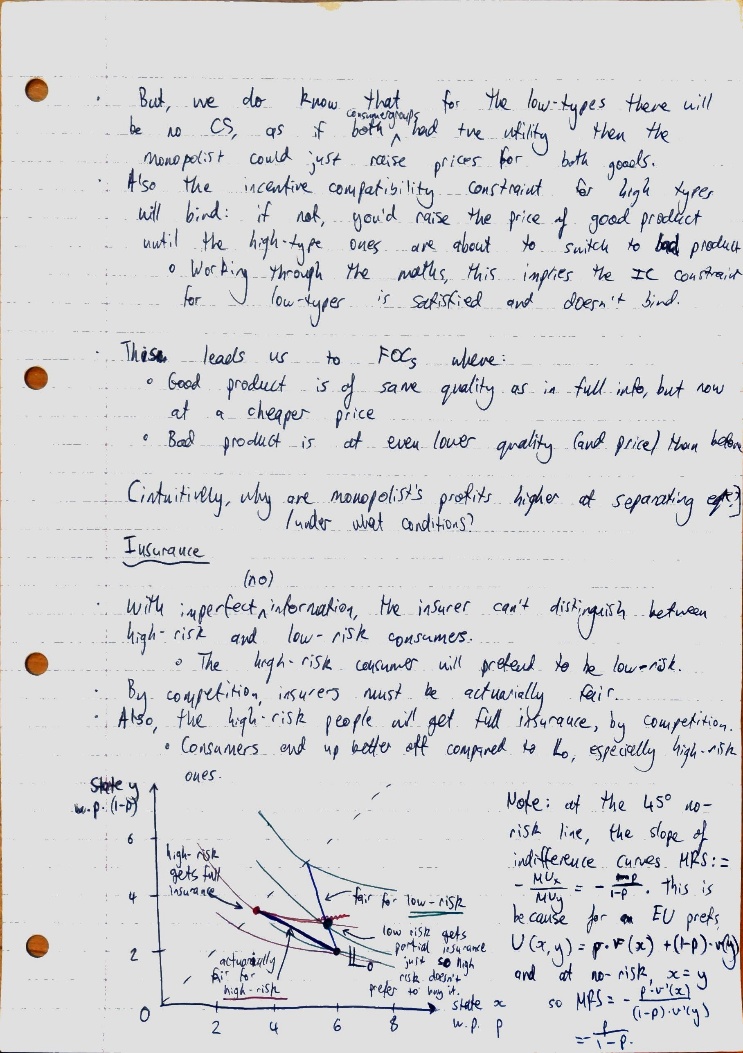 But, we do know that for the low-types there will
be no CS, as if both consumer groups had +ve utility then the
monopolist could just raise prices for both goods.
Also the incentive compatibility constraint for high types
will bind: if not, you'd raise the price of good product
until the high-type ones are about to switch to bad product
Working through the maths, this implies the IC constraint
for low-types is satisfied and doesn't bind.
This leads us to FOCs where:
Good product is of same quality as in full info, but now
at a cheaper price
Bad product is at even lower quality (and price) than before
(intuitively, why are monopolist's profits higher at separating
/under what conditions?
Insurance
(no)
With imperfect information, the insurer can't distinguish between
high-risk and low-risk consumers.
The high-risk consumer will pretend to be low-risk.
By competition, insurers must be actuarially fair.
Also, the high-risk people will get full insurance, by competition.
Consumers end up better off compared to L0, especially high-risk
ones.
State y
w.p. (1-p)
6
4
2
0
2
4
6
8
state x
w.p. p
high-risk
gets full
insurance
fair for low-risk
low risk gets
partial insurance
just so high
risk doesn't
prefer to buy it.
actuarially
fair for
high-risk
L0
Note: at the 45° no-
risk line, the slope of
indifference curves MRS:=
- MUx/MUy = - p/1-p. This is
because for EU prefs,
U(x,y) = p·v(x) + (1-p)·v(y)
and at no-risk, x=y
so MRS = - p·v'(x)/(1-p)·v'(y)
= - p/1-p.